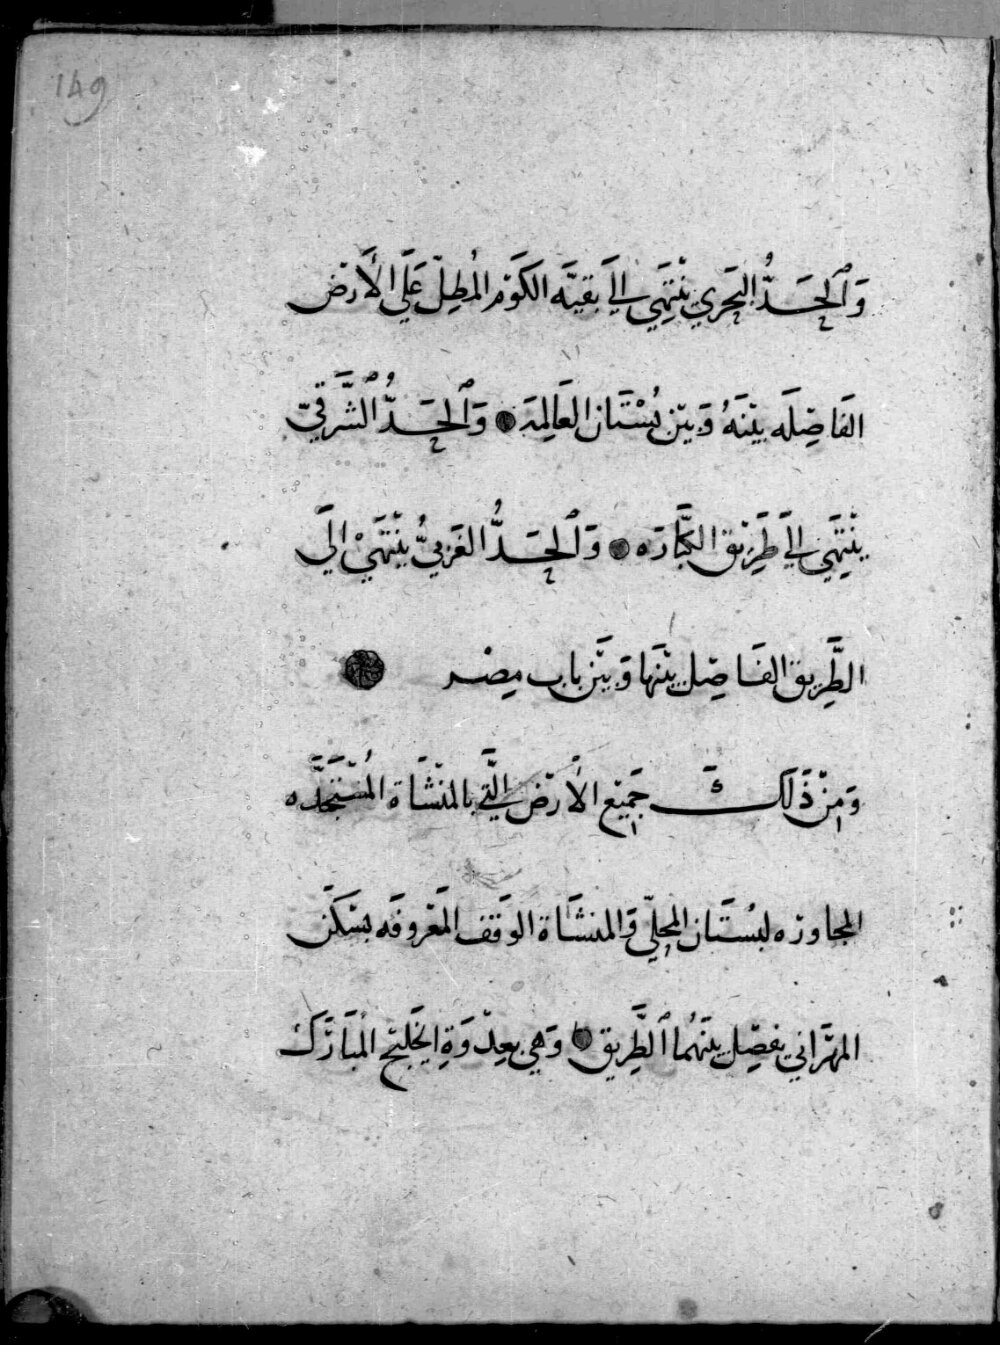 149
وَٱلحَدُّ البَحَري يَنْتَهَي إليَ بقيَّه الكَوَم المُطِلّ عَلَي الأَرَض
الفَاصِلَه بيْنَهُ وَبَيْن بُسْتَان العَالِمَه وَٱلحَدُّ الشَّرَقيّ
يَنْتِهَي إليَ طَرَيْق الكبَّارَه وَٱلحَدُّ الغَرَبيُّ يَنْتَهَيْ إلَي
الطَّرِيق الفَاصِل بيْنَها وَبَيْن باب مِصْر
وَمِنْ ذَلَكَ جَمَيْع الأرْض الَّتي بالمنْشَاة المُسْتَجَدَّه
المجاورَه لبُستَان المحليّ وَالمنشَاة الوَقف المَعْروفَه بسَكَن
المهَرَاني يفصِل بيَنَهُما ٱلطَّرِيق وَهَي بعِدْوَةِ الخَلَيْج المبَارَك